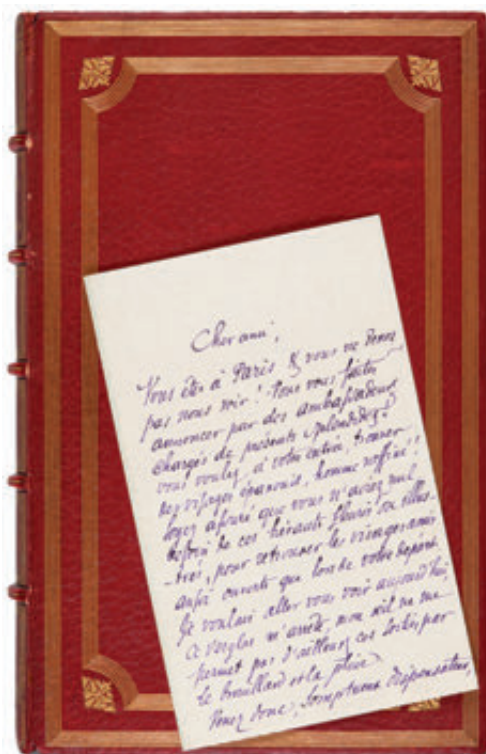 Cher ami,
Vous êtes à Paris & vous ne venez
pas nous voir ! Vous vous faites
annoncer par des ambassadeurs
chargés de présents splendides !
vous voulez, à votre entrée, trouver
des visages épanouis, homme raffiné !
soyez assuré que vous n'aviez nul
besoin de ces hérauts fleuris ou illus-
-trés, pour retrouver les visages amis
aussi ouverts que lors de votre départ.
Je voulais aller vous voir aujourd'hui,
ce verglas m'arrête, mon œil ne me
permet pas d'ailleurs ces sorties, par
le brouillard et la pluie.
Venez donc, somptueux dispensateur,